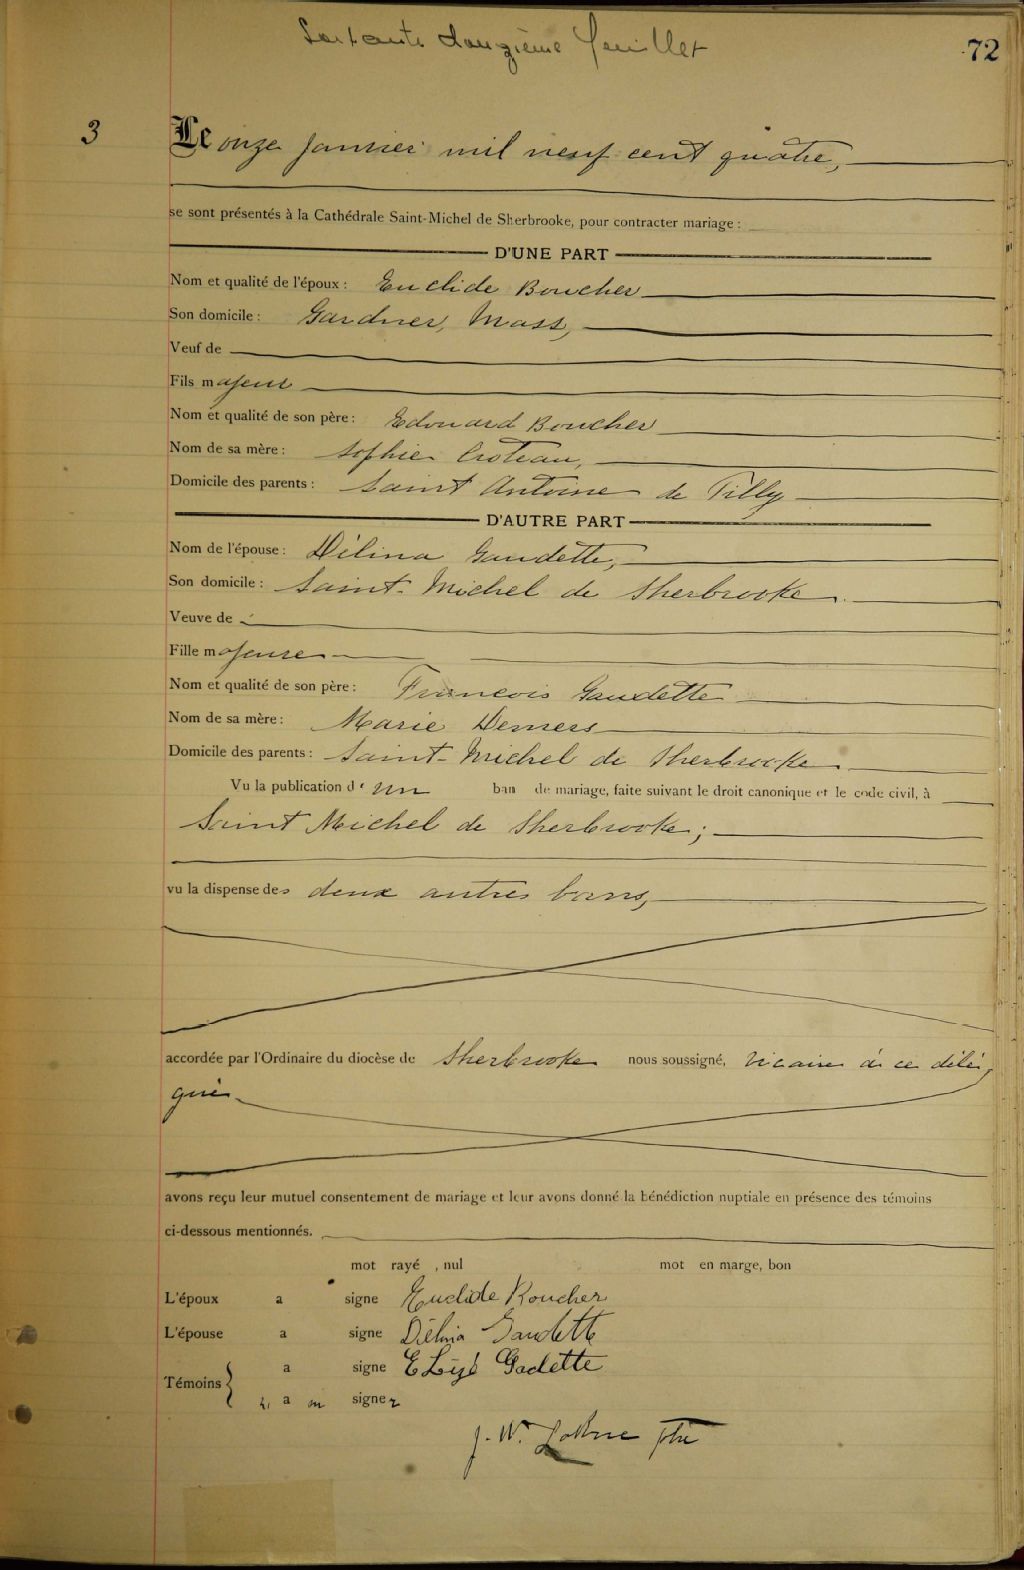 Soixante douzième feuillet
72
3
Le onze janvier mil neuf cent quatre,
se sont présentés à la Cathédrale Saint-Michel de Sherbrooke, pour contracter mariage :
D'UNE PART
Nom et qualité de l'époux : Euclide Boucher
Son domicile : Gardner, Mass,
Veuf de
Fils majeur
Nom et qualité de son père : Edouard Boucher
Nom de sa mère : Sophie Croteau,
Domicile des parents : Saint Antoine de Tilly
D'AUTRE PART
Nom de l'épouse : Délina Gaudette,
Son domicile : Saint-Michel de Sherbrooke
Veuve de
Fille majeure
Nom et qualité de son père : Francois Gaudette
Nom de sa mère : Marie Demers
Domicile des parents : Saint-Michel de Sherbrooke
Vu la publication d'un ban de mariage, faite suivant le droit canonique et le code civil, à
Saint Michel de Sherbrooke;
vu la dispense des deux autres bans,
accordée par l'Ordinaire du diocèse de Sherbrooke nous soussigné, vicaire à ce délé
gué
avons reçu leur mutuel consentement de mariage et leur avons donné la bénédiction nuptiale en présence des témoins
ci-dessous mentionnés.
mot rayé , nul mot en marge, bon
L'époux a signé Euclide Boucher
L'épouse a signé Délina Gaudette
Témoins a signé Gadette
a signer
J. W. ptre